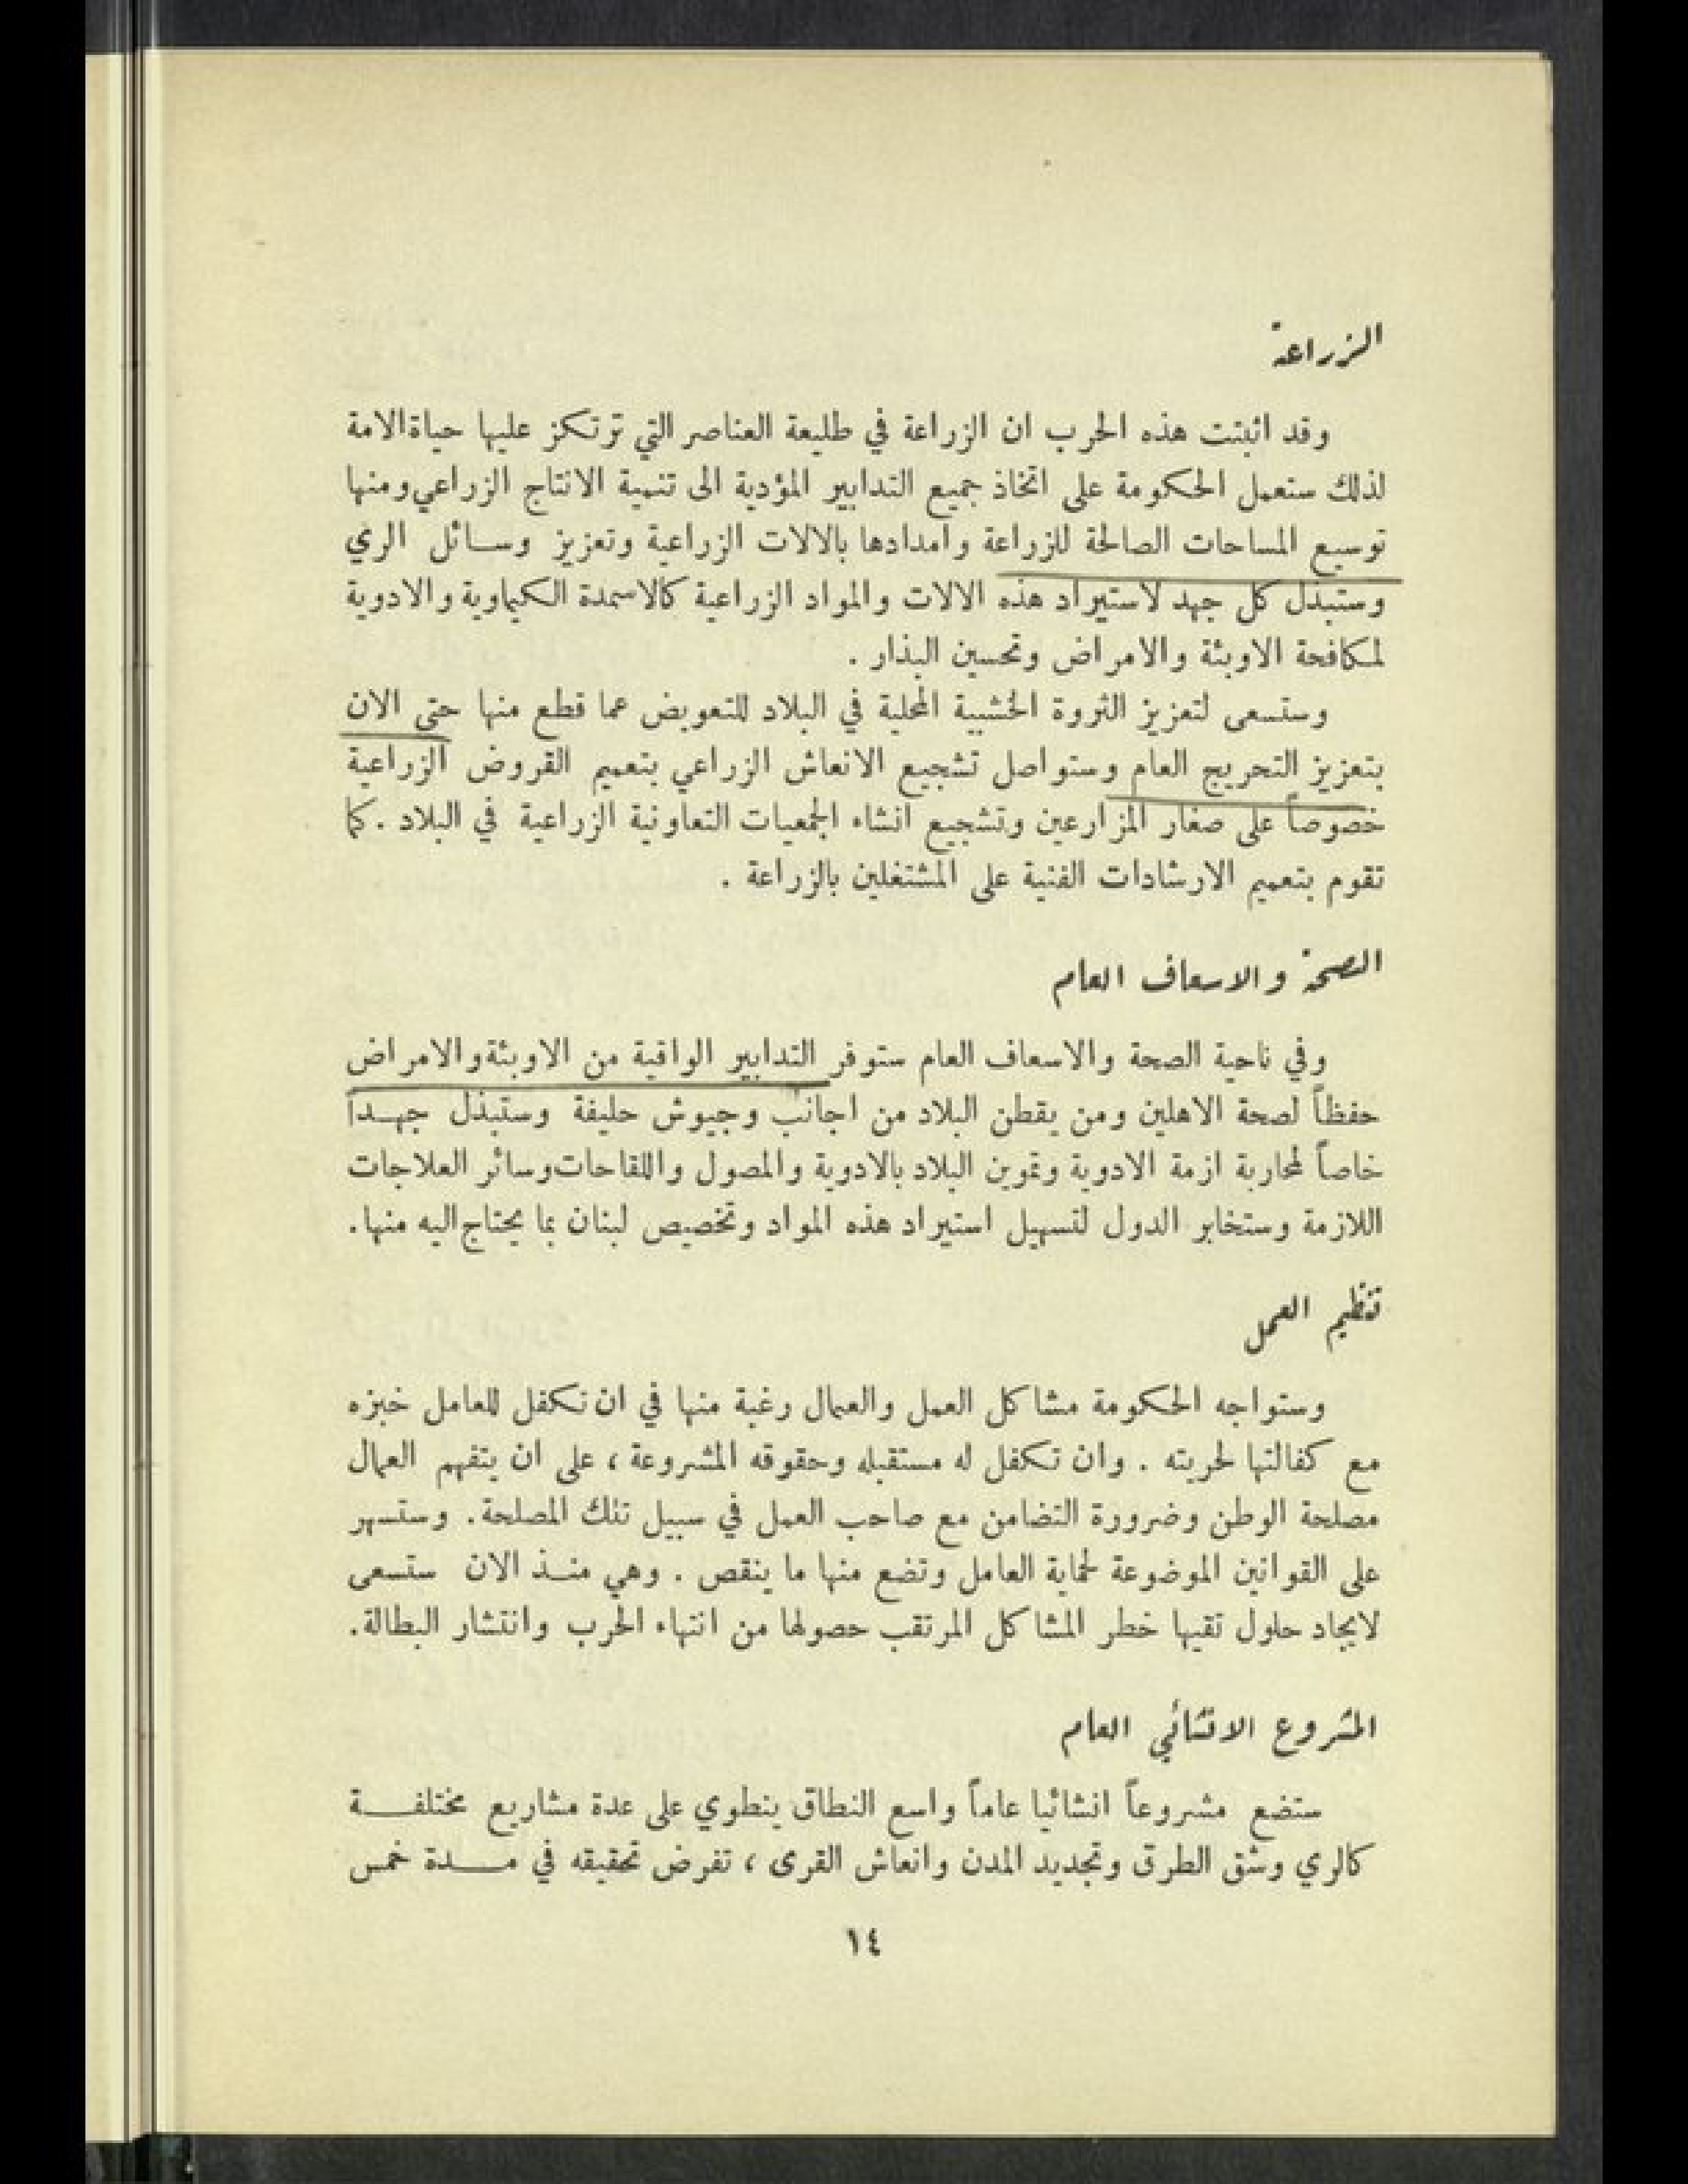 الزراعة
وقد اثبتت هذه الحرب ان الزراعة في طليعة العناصر التي ترتكز عليها حياة الامة
لذلك ستعمل الحكومة على اتخاذ جميع التدابير المؤدية الى تنمية الانتاج الزراعي ومنها
توسيع المساحات الصالحة للزراعة وامدادها بالالات الزراعية وتعزيز وسائل الري
وستبذل كل جهد لاستيراد هذه الالات والمواد الزراعية كالاسمدة الكيماوية والادوية
لمكافحة الاوبئة والامراض وتحسين البذار .
وستسعى لتعزيز الثروة الخشبية المحلية في البلاد للتعويض عما قطع منها حتى الان
بتعزيز التحريج العام وستواصل تشجيع الانعاش الزراعي بتعميم القروض الزراعية
خصوصاً على صغار المزارعين وتشجيع انشاء الجمعيات التعاونية الزراعية في البلاد . كما
تقوم بتعميم الارشادات الفنية على المشتغلين بالزراعة .
الصحة والاسعاف العام
وفي ناحية الصحة والاسعاف العام ستوفر التدابير الواقية من الاوبئة والامراض
حفظاً لصحة الاهلين ومن يقطن البلاد من اجانب وجيوش حليفة وستبذل جهداً
خاصاً لمحاربة ازمة الادوية وتموين البلاد بالادوية والمصول واللقاحات وسائر العلاجات
اللازمة وستخابر الدول لتسهيل استيراد هذه المواد وتخصيص لبنان بما يحتاج اليه منها .
تنظيم العمل
وستواجه الحكومة مشاكل العمل والعمال رغبة منها في ان تكفل للعامل خبزه
مع كفالتها لحريته . وان تكفل له مستقبله وحقوقه المشروعة ، على ان يتفهم العمال
مصلحة الوطن وضرورة التضامن مع صاحب العمل في سبيل تلك المصلحة . وستسهر
على القوانين الموضوعة لحماية العامل وتضع منها ما ينقص . وهي منذ الان ستسعى
لايجاد حلول تقيها خطر المشاكل المرتقب حصولها من انتهاء الحرب وانتشار البطالة .
المشروع الانشائي العام
ستضع مشروعاً انشائيا عاماً واسع النطاق ينطوي على عدة مشاريع مختلفة
كالري وشق الطرق وتجديد المدن وانعاش القرى ، تفرض تحقيقه في مدة خمس
١٤